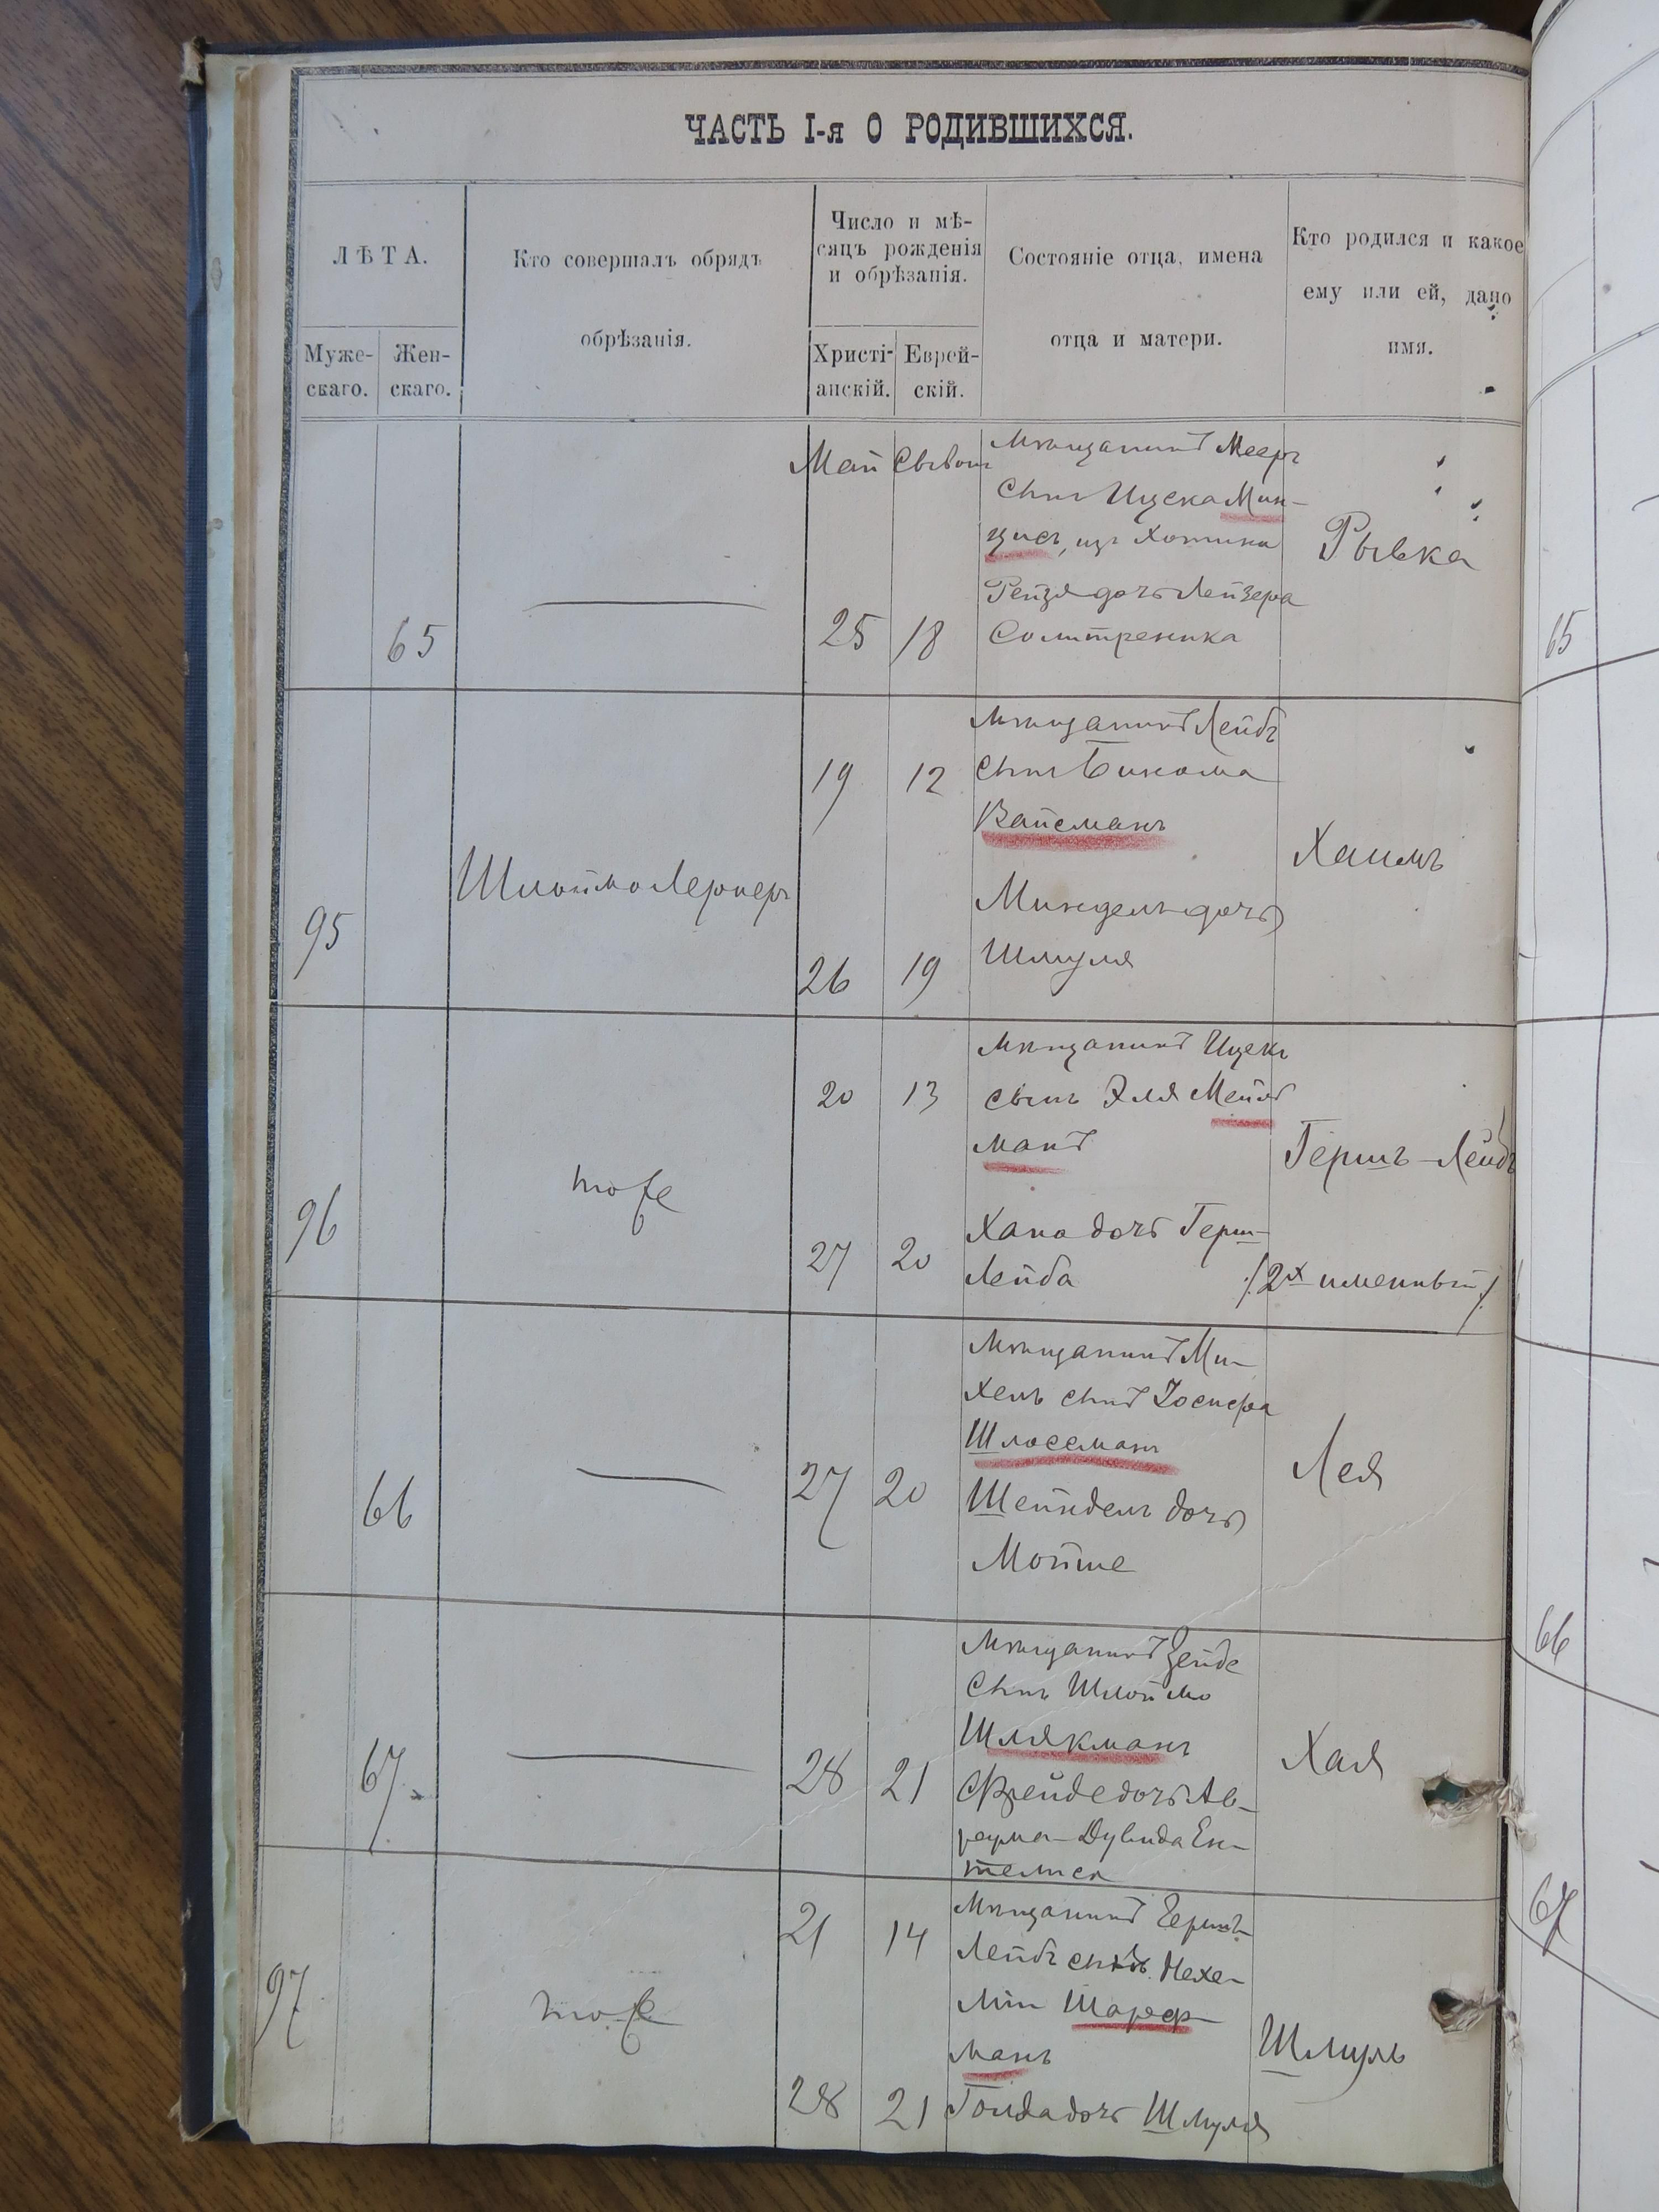 ЧАСТЬ I-я О РОДИВШИХСЯ.
ЛѢТА.
Муже-
скаго.
Жен-
скаго.
Кто совершалъ обрядъ
обрѣзанія.
Число и мѣ-
сяцъ рожденія
и обрѣзанія.
Христі-
анскій.
Еврей-
скій.
Состояніе отца, имена
отца и матери.
Кто родился и какое
ему или ей, дано
имя.
65
Май
25
18
Мѣщанинъ Мееръ
сынъ Ицека Мин-
цисъ, изъ Хотина
Рейзя дочь Лейзера
Солитреника
Рывка
95
Шлоймо Лернеръ
19 12
26 19
Мѣщанинъ Лейбъ
сынъ
Вайсманъ
Миндель дочь
Шмуля
Хаимъ
96
тоже
20 13
27 20
Мѣщанинъ Ицекъ
сынъ Эля
манъ
Хана дочь Герш-
Лейба
Гершъ-Лейбъ
/2х именный/
66
27 20
Мѣщанинъ Ми-
хель сынъ Іосифа
Шлоссманъ
Шейндель дочь
Мойше
Лея
67
28 21
Мѣщанинъ Зейде
сынъ Шлоймо
Шлякманъ
Фрейде дочь Ав-
рума-Дувида Ен-
Хая
97
тоже
21 14
28 21
Мѣщанинъ Гершъ-
Лейбъ сынъ Нехе-
мін Шарф-
манъ
Голда дочь Шмуля
Шмуль
65
66
67